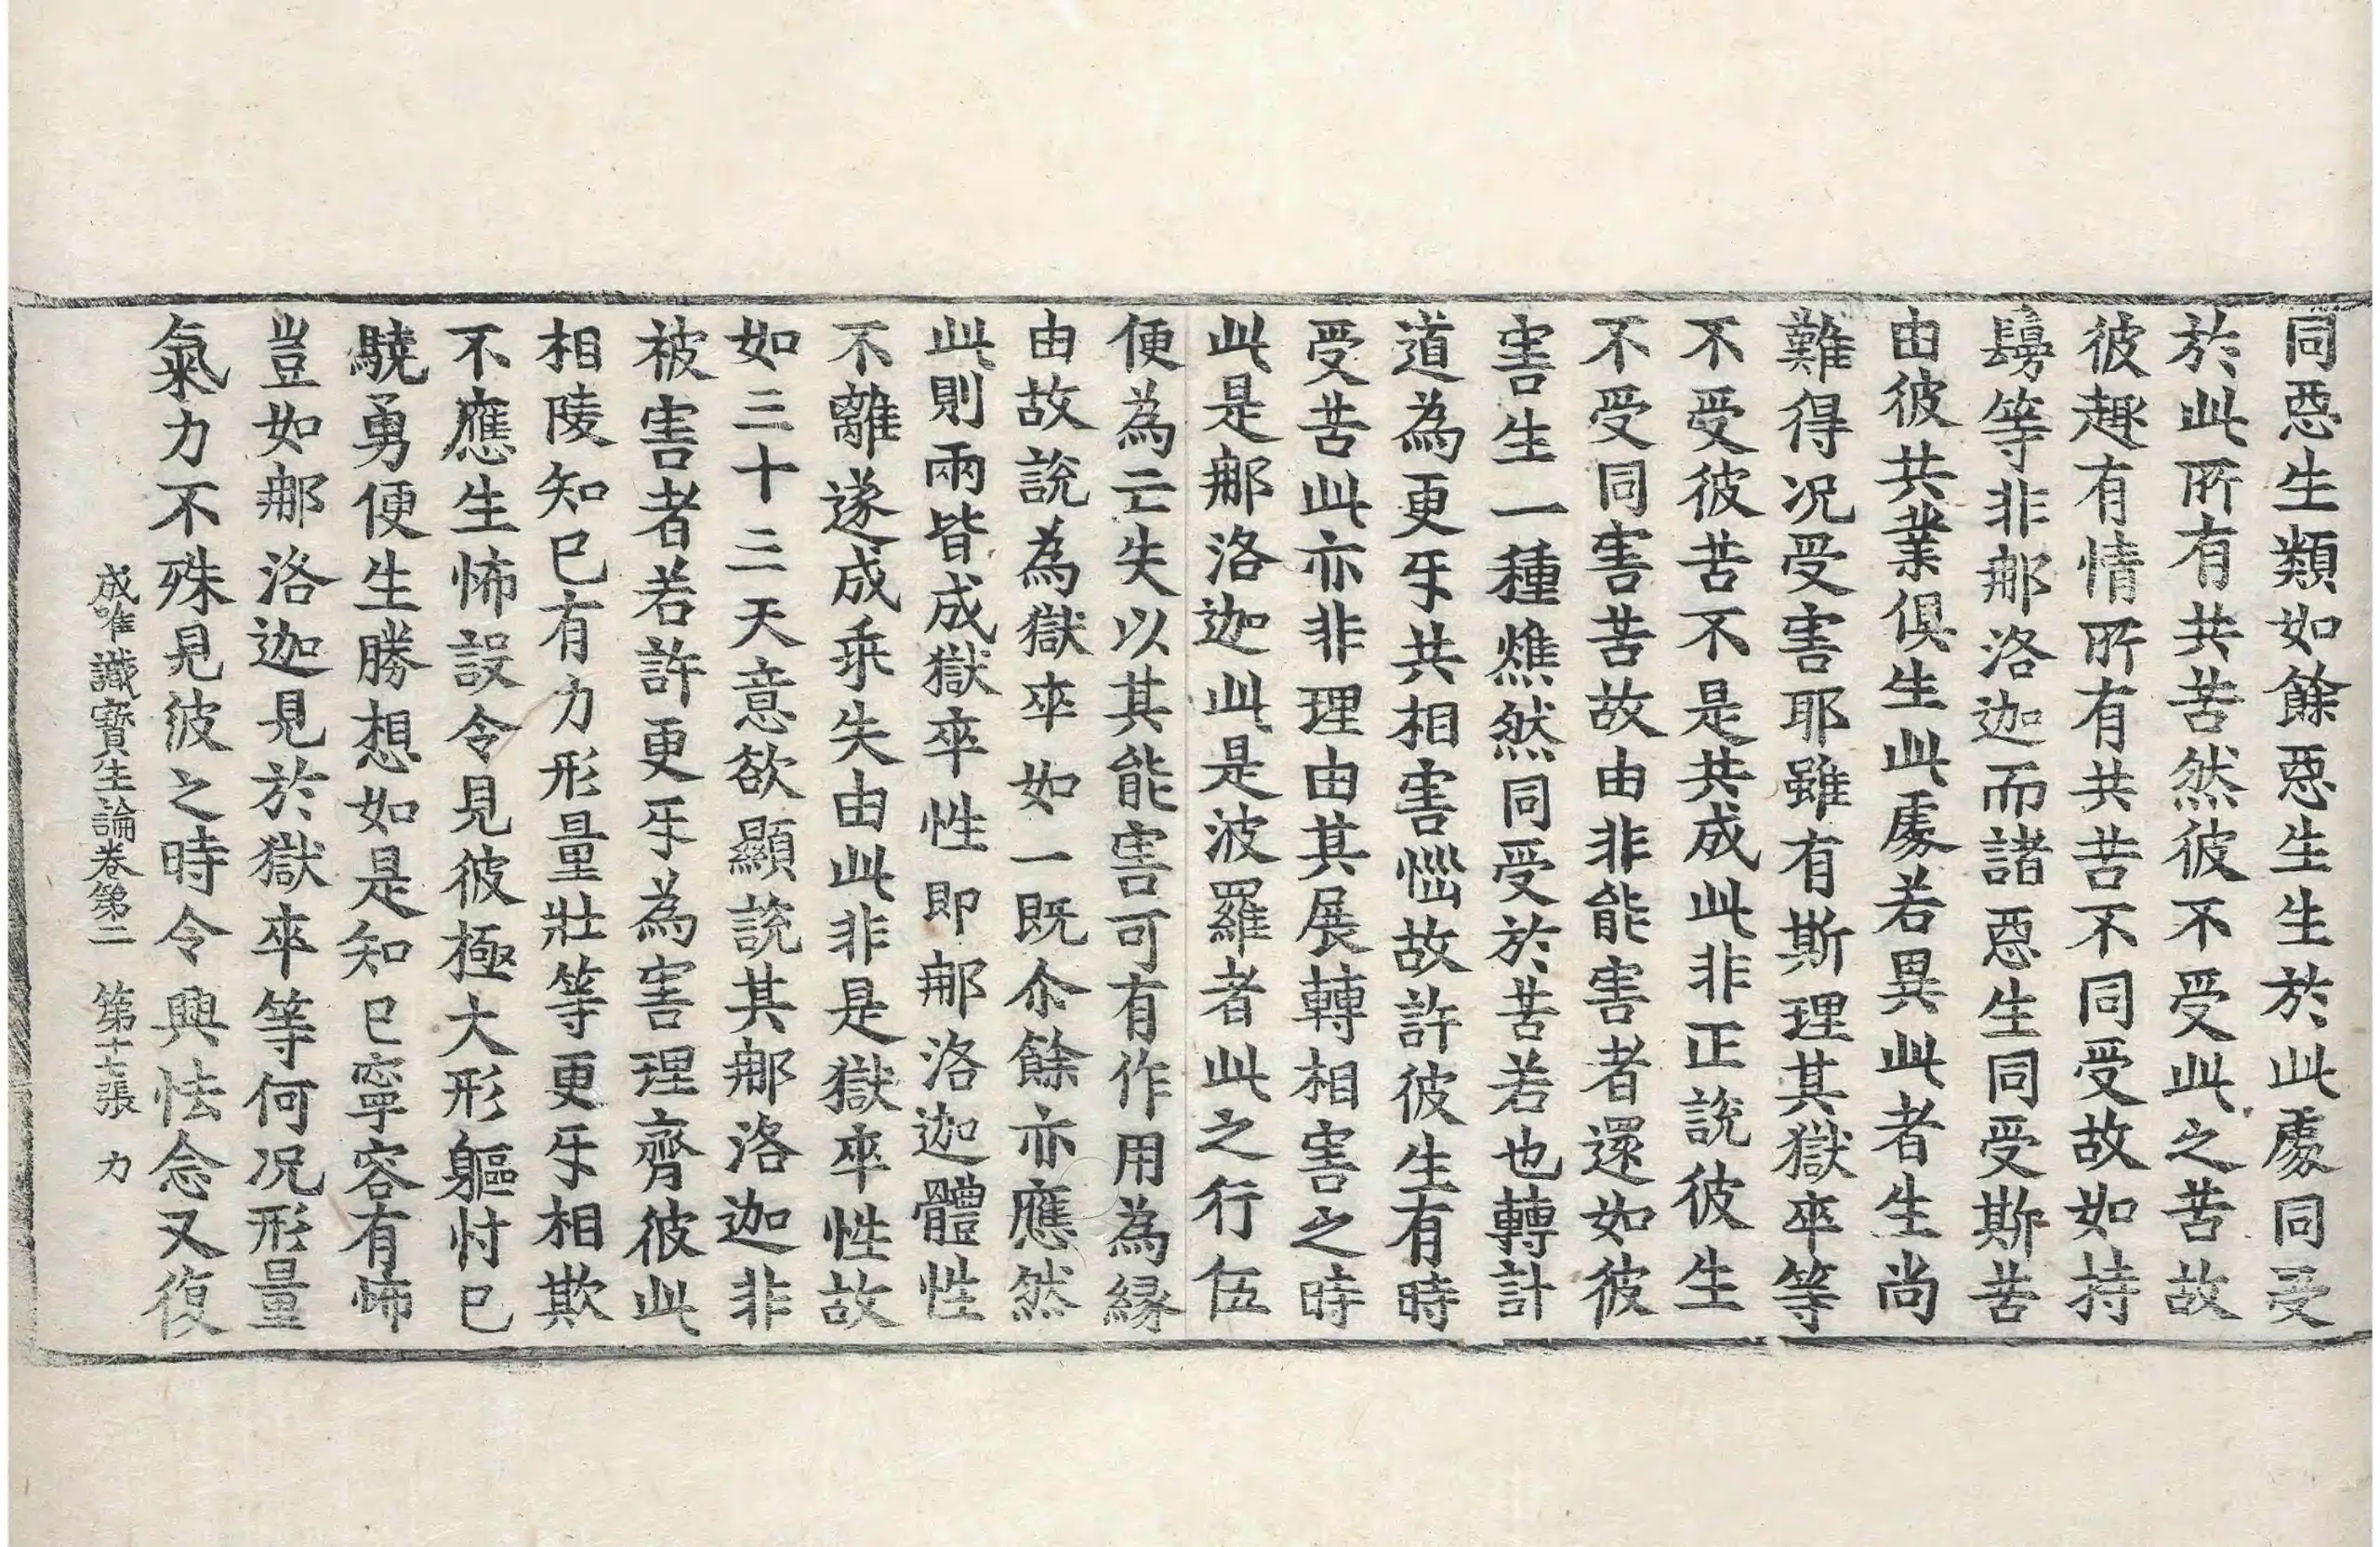 同惡生類如餘惡生生於此處同受
於此所有共苦然彼不受此之苦故
彼趣有情所有共苦不同受故如持
髈等非那洛迦而諸惡生同受斯苦
由彼共業俱生此處若異此者生尚
難得況受害耶雖有斯理其獄卒等
不受彼苦不是共成此非正說彼生
不受同害苦故由非能害者還如彼
害生一種燋然同受於苦若也轉計
道為更牙共相害惱故許彼生有時
受苦此亦非理由其展轉相害之時
此是那洛迦此是波羅者此之行伍
便為亡失以其能害可有作用為緣
由故說為獄卒如一既尒餘亦應然
此則兩皆成獄卒性即那洛迦體性
不離遂成乖失由此非是獄卒性故
如三十三天意欲顯說其那洛迦非
被害者若許更牙為害理齊彼此
相陵知已有力形量壯等更牙相欺
不應生怖設令見彼極大形軀忖已
驍勇便生勝想如是知已寧容有怖
豈如那洛迦見於獄卒等何況形量
氣力不殊見彼之時令興怯念又復
成唯識寶生論卷第二 第十七張 力